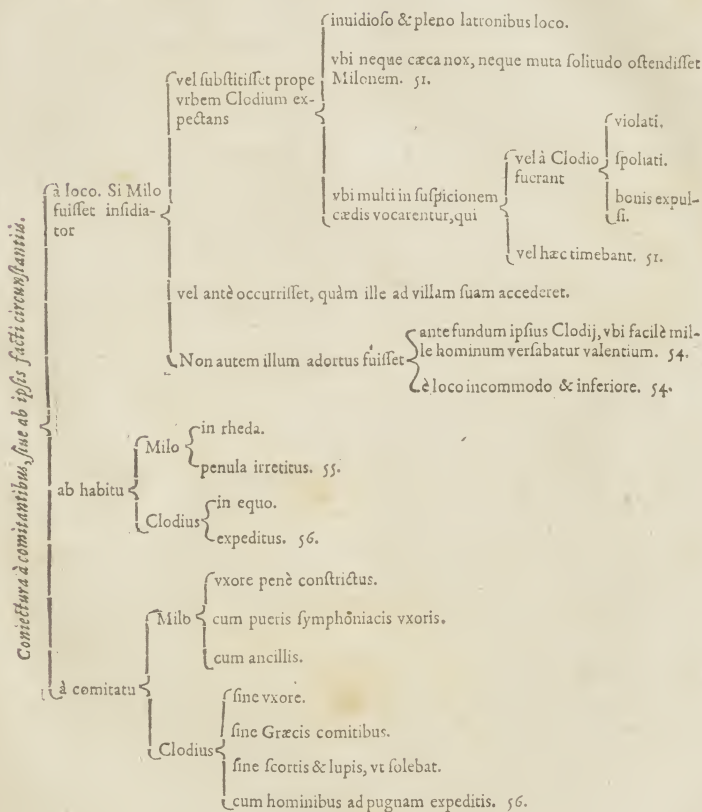 Coniectura à comitantibus, siue ab ipsis facti circunstantiis.
à loco. Si Milo
fuisset insidia-
tor
vel substitisset prope
vrbem Clodium ex-
pectans
inuidioso & pleno latronibus loco.
vbi neque cæca nox, neque muta solitudo ostendisset
Milonem. 51.
vbi multi in suspicionem
cædis vocarentur, qui
vel à Clodio
fuerant
violati.
spoliati.
bonis expul-
si.
vel hæc timebant. 51.
vel antè occurrisset, quàm ille ad villam suam accederet.
Non autem illum adortus fuisset
ante fundum ipsius Clodij, vbi facilè mil-
le hominum versabatur valentium. 54.
è loco incommodo & inferiore. 54.
ab habitu
Milo
in rheda.
penula irretitus. 55.
Clodius
in equo.
expeditus. 56.
à comitatu
Milo
vxore penè constrictus.
cum pueris symphoniacis vxoris.
cum ancillis.
Clodius
sine vxore.
sine Græcis comitibus.
sine scortis & lupis, vt solebat.
cum hominibus ad pugnam expeditis. 56.